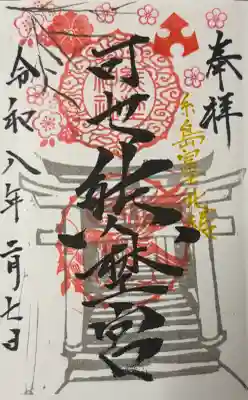 奉拝
糸島富士
可也熊埜宮
令和八年二月七日